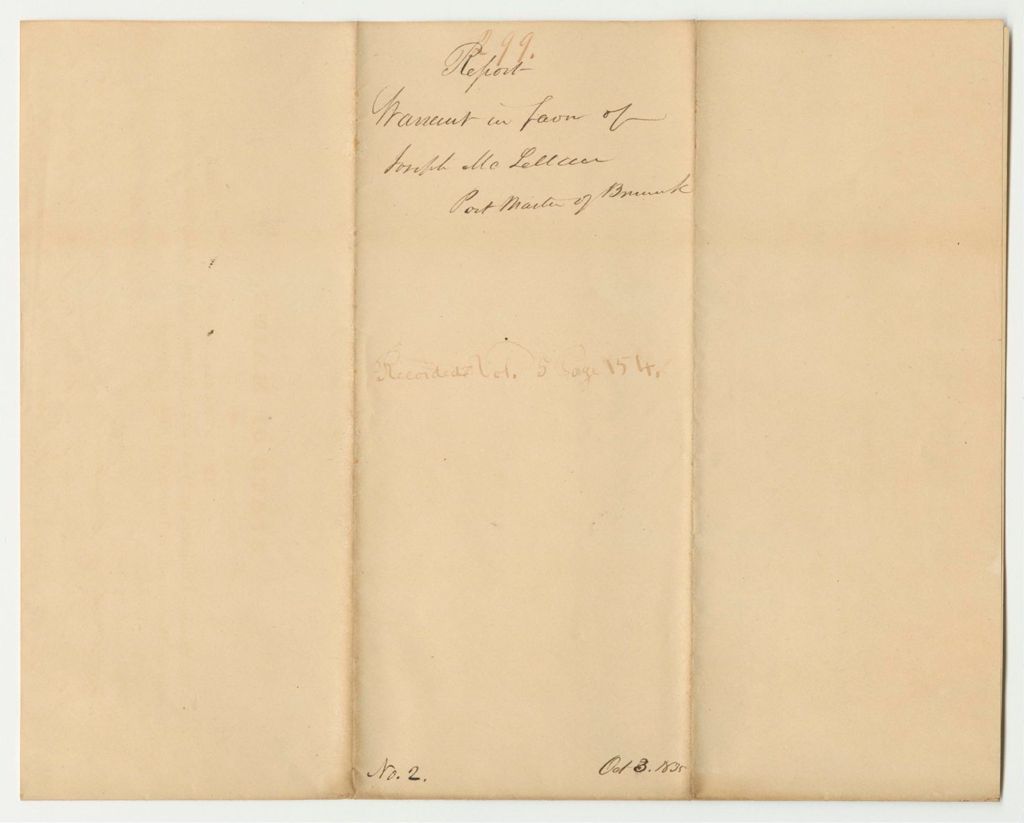 299.
Report
Warrant in favor of
Joseph Mc Lellan
Post Master of Brunswk
Recorded Vol. 5 Page 154.
No. 2.
Oct 3. 1835